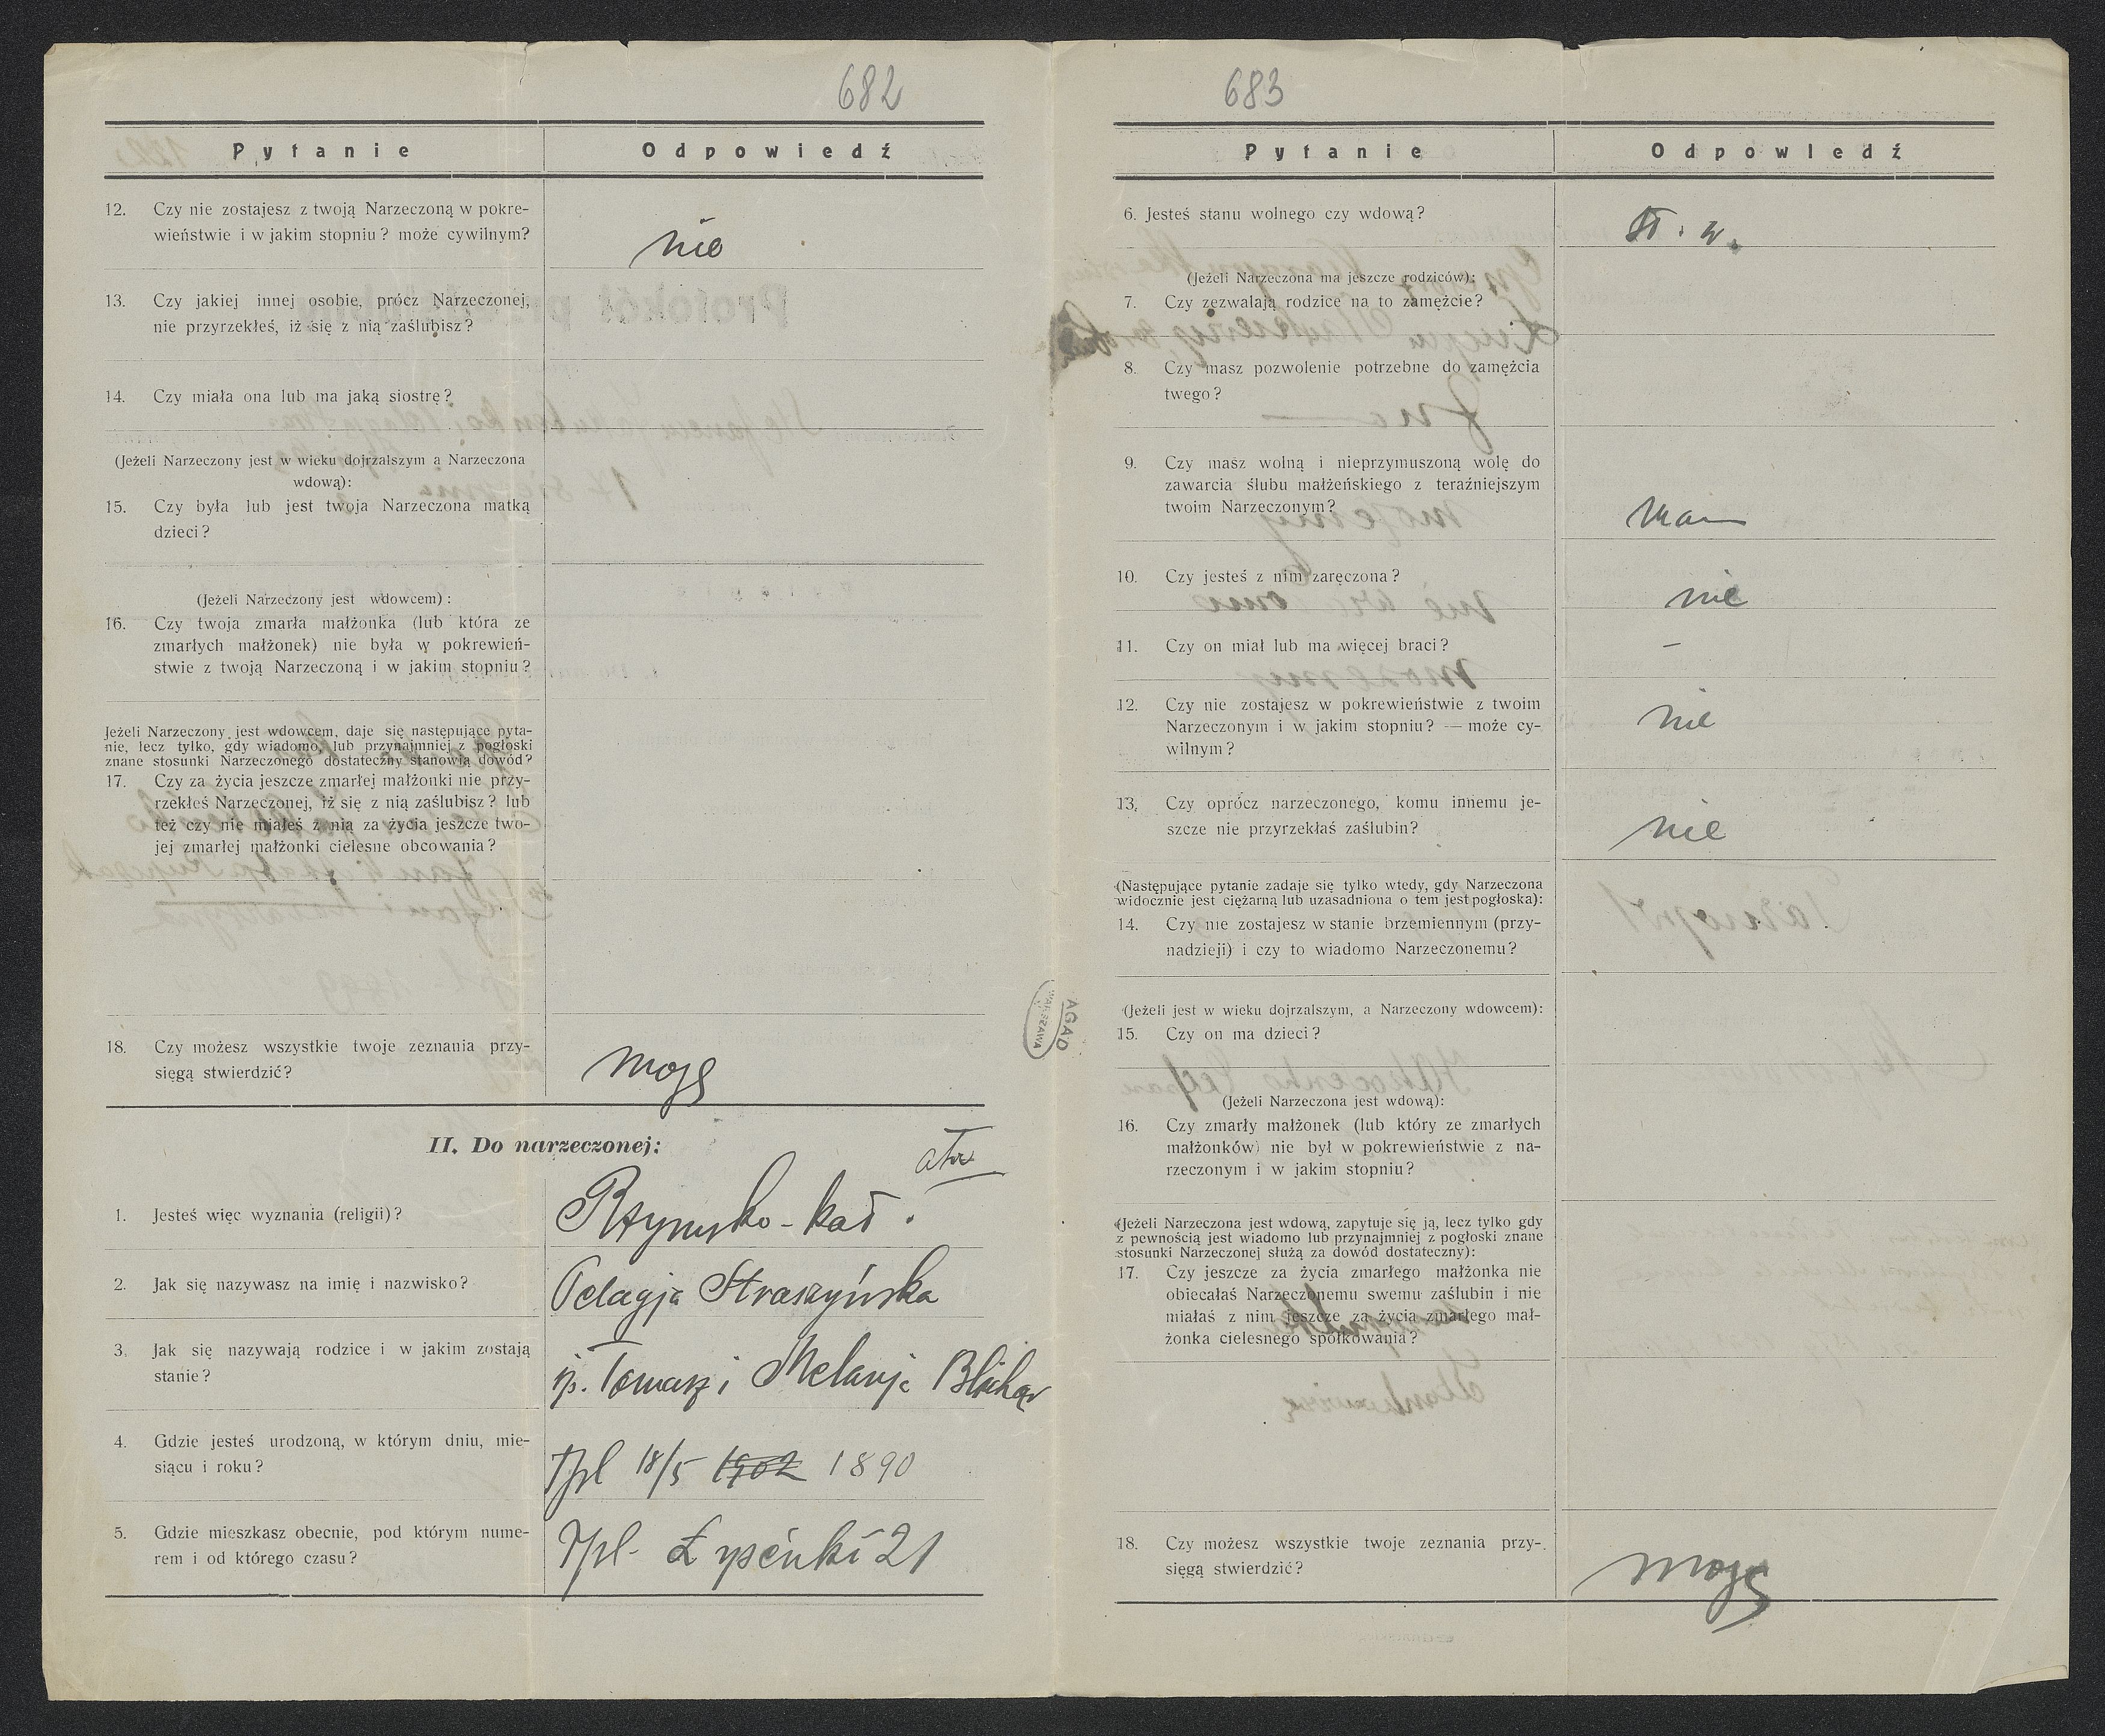 682
Pytanie Odpowiedź
12. Czy nie zostajesz z twoją Narzeczoną w pokre-
wieństwie i w jakim stopniu? może cywilnym?
nie
13. Czy jakiej innej osobie, prócz Narzeczonej,
nie przyrzekłeś, iż się z nią zaślubisz?
14. Czy miała ona lub ma jaką siostrę?
(Jeżeli Narzeczony jest w wieku dojrzalszym a Narzeczona
wdową):
15. Czy była lub jest twoja Narzeczona matką
dzieci?
(Jeżeli Narzeczony jest wdowcem):
16. Czy twoja zmarła małżonka (lub która ze
zmarłych małżonek) nie była w pokrewień-
stwie z twoją Narzeczoną i w jakim stopniu?
Jeżeli Narzeczony jest wdowcem, daje się następujące pyta-
nie, lecz tylko, gdy wiadomo, lub przynajmniej z pogłoski
znane stosunki Narzeczonego dostateczny stanowią dowód?
17. Czy za życia jeszcze zmarłej małżonki nie przy-
rzekłeś Narzeczonej, iż się z nią zaślubisz? lub
też czy nie miałeś z nią za życia jeszcze two-
jej zmarłej małżonki cielesne obcowania?
18. Czy możesz wszystkie twoje zeznania przy-
sięgą stwierdzić?
mogę
II. Do narzeczonej:
1. Jesteś więc wyznania (religii)?
Rzymsko-kat.
2. Jak się nazywasz na imię i nazwisko?
Pelagja Straszyńska
3. Jak się nazywają rodzice i w jakim zostają
stanie?
śp. Tomasz i Melanja Blichar
4. Gdzie jesteś urodzoną, w którym dniu, mie-
siącu i roku?
Tpl 18/5 1902 1890
5. Gdzie mieszkasz obecnie, pod którym nume-
rem i od którego czasu?
Tpl- 21
683
Pytanie Odpowiedź
6. Jesteś stanu wolnego czy wdową?
st. w.
(Jeżeli Narzeczona ma jeszcze rodziców):
7. Czy zezwalają rodzice na to zamężcie?
8. Czy masz pozwolenie potrzebne do zamężcia
twego?
9. Czy masz wolną i nieprzymuszoną wolę do
zawarcia ślubu małżeńskiego z teraźniejszym
twoim Narzeczonym?
mam
10. Czy jesteś z nim zaręczona?
nie
11. Czy on miał lub ma więcej braci?
–
12. Czy nie zostajesz w pokrewieństwie z twoim
Narzeczonym i w jakim stopniu? — może cy-
wilnym?
nie
13. Czy oprócz narzeczonego, komu innemu je-
szcze nie przyrzekłaś zaślubin?
nie
(Następujące pytanie zadaje się tylko wtedy, gdy Narzeczona
widocznie jest ciężarną lub uzasadniona o tem jest pogłoska):
14. Czy nie zostajesz w stanie brzemiennym (przy-
nadzieji) i czy to wiadomo Narzeczonemu?
(Jeżeli jest w wieku dojrzalszym, a Narzeczony wdowcem):
15. Czy on ma dzieci?
(Jeżeli Narzeczona jest wdową):
16. Czy zmarły małżonek (lub który ze zmarłych
małżonków) nie był w pokrewieństwie z na-
rzeczonym i w jakim stopniu?
(Jeżeli Narzeczona jest wdową, zapytuje się ją, lecz tylko gdy
z pewnością jest wiadomo lub przynajmniej z pogłoski znane
stosunki Narzeczonej służą za dowód dostateczny):
17. Czy jeszcze za życia zmarłego małżonka nie
obiecałaś Narzeczonemu swemu zaślubin i nie
miałaś z nim jeszcze za życia zmarłego mał-
żonka cielesnego spółkowania?
18. Czy możesz wszystkie twoje zeznania przy-
sięgą stwierdzić?
mogę
AGAD
WARSZAWA